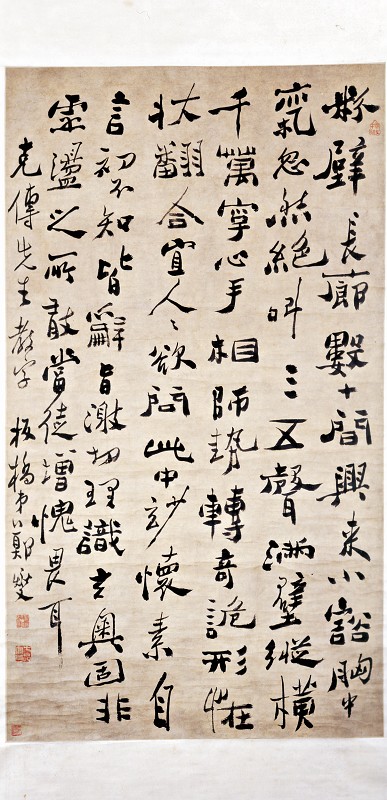 粉壁長廊數十間興來小豁胸中
氣忽然絕叫三五聲滿壁縱橫
千萬字心手相師勢轉奇詭形恠
狀翻合宜人〻欲問此中妙懷素自
言初不知皆辭旨激切理識玄奧固非
虛濫之所敢當徒增愧畏耳
克傳先生教字 板橋弟鄭燮